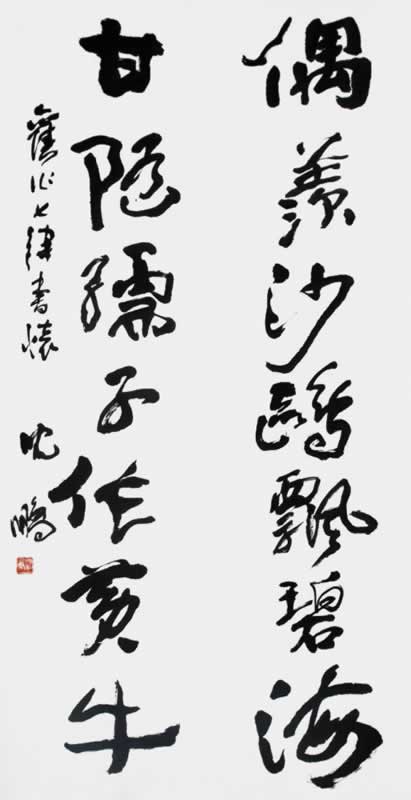 偶羡沙鸥飘碧海
甘随孺子作黄牛
旧作七律书怀
沈鹏